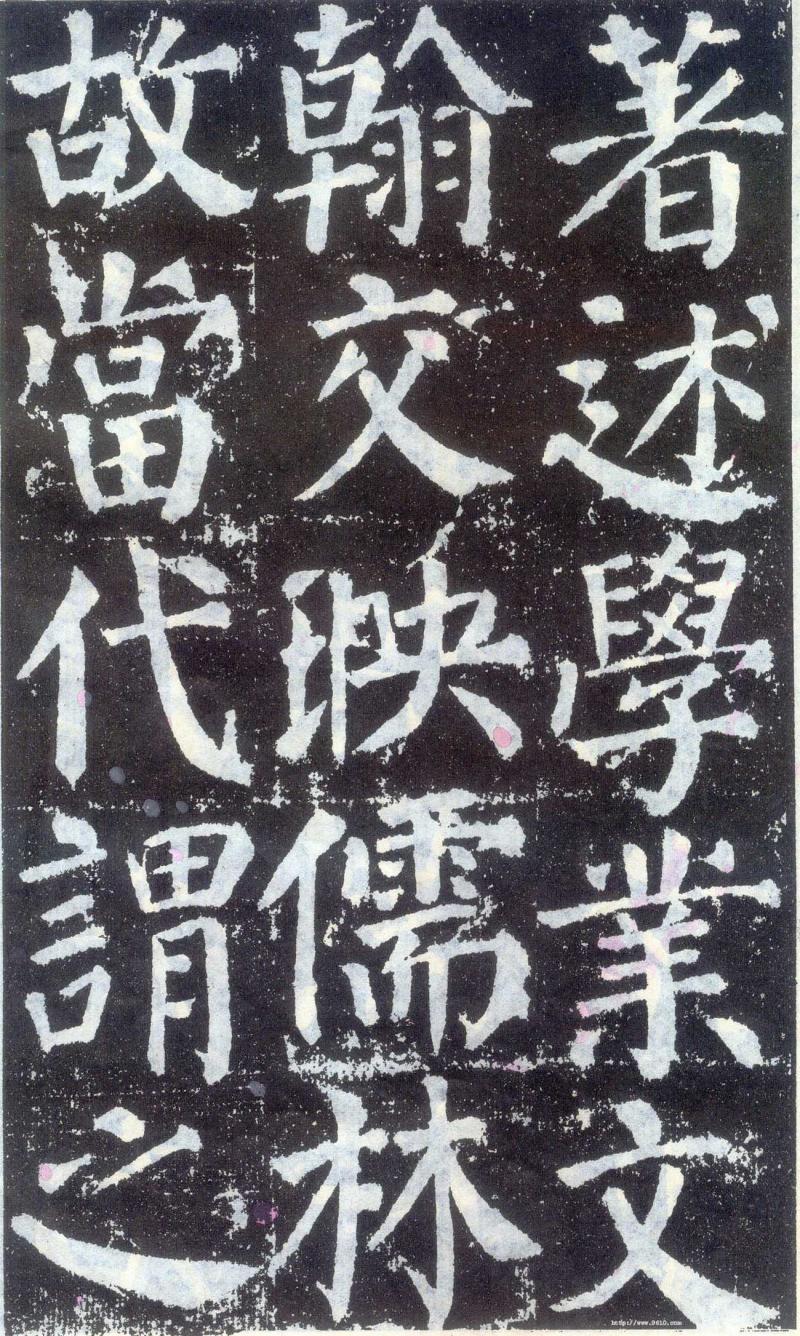 著述學業文
翰交映儒林
故當代謂之
http://www.9610.com